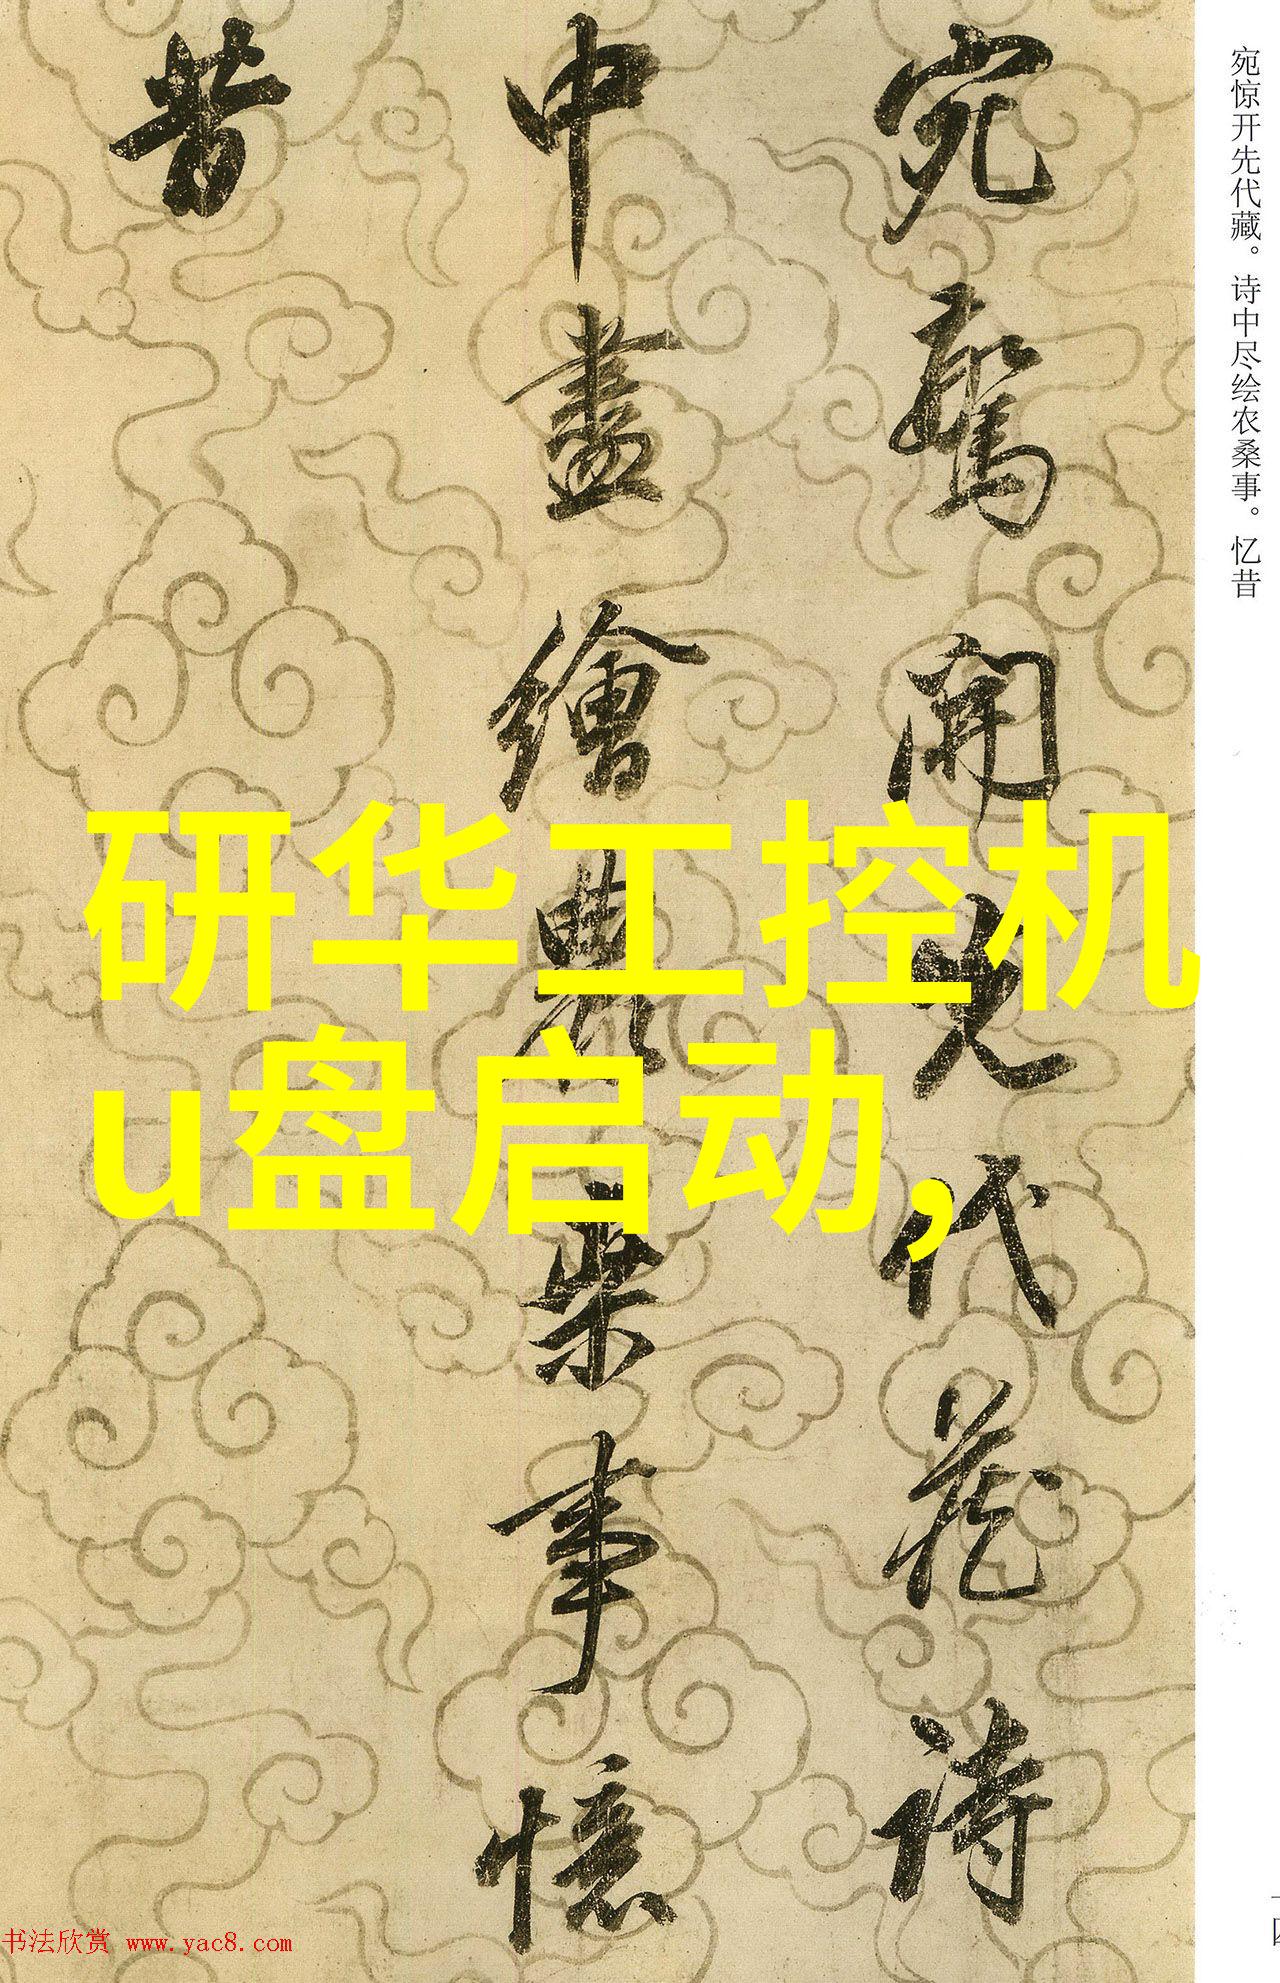 宛驚開先代藏詩
中盡繪農桒事憶
昔
宛惊开先代藏。诗中尽绘农桑事。忆昔
研华工控机
u盘启动,
书法欣赏 www.yac8.com